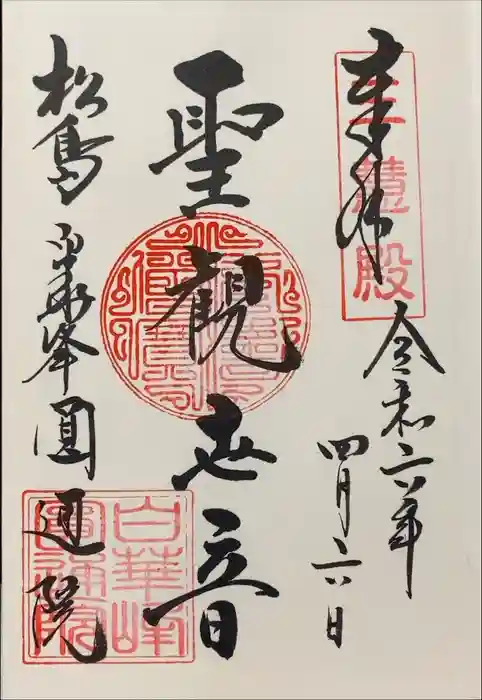 奉拝
三慧殿
令和六年
四月六日
聖観世音
松島 白華峰圓通院
白華峰
圓通院